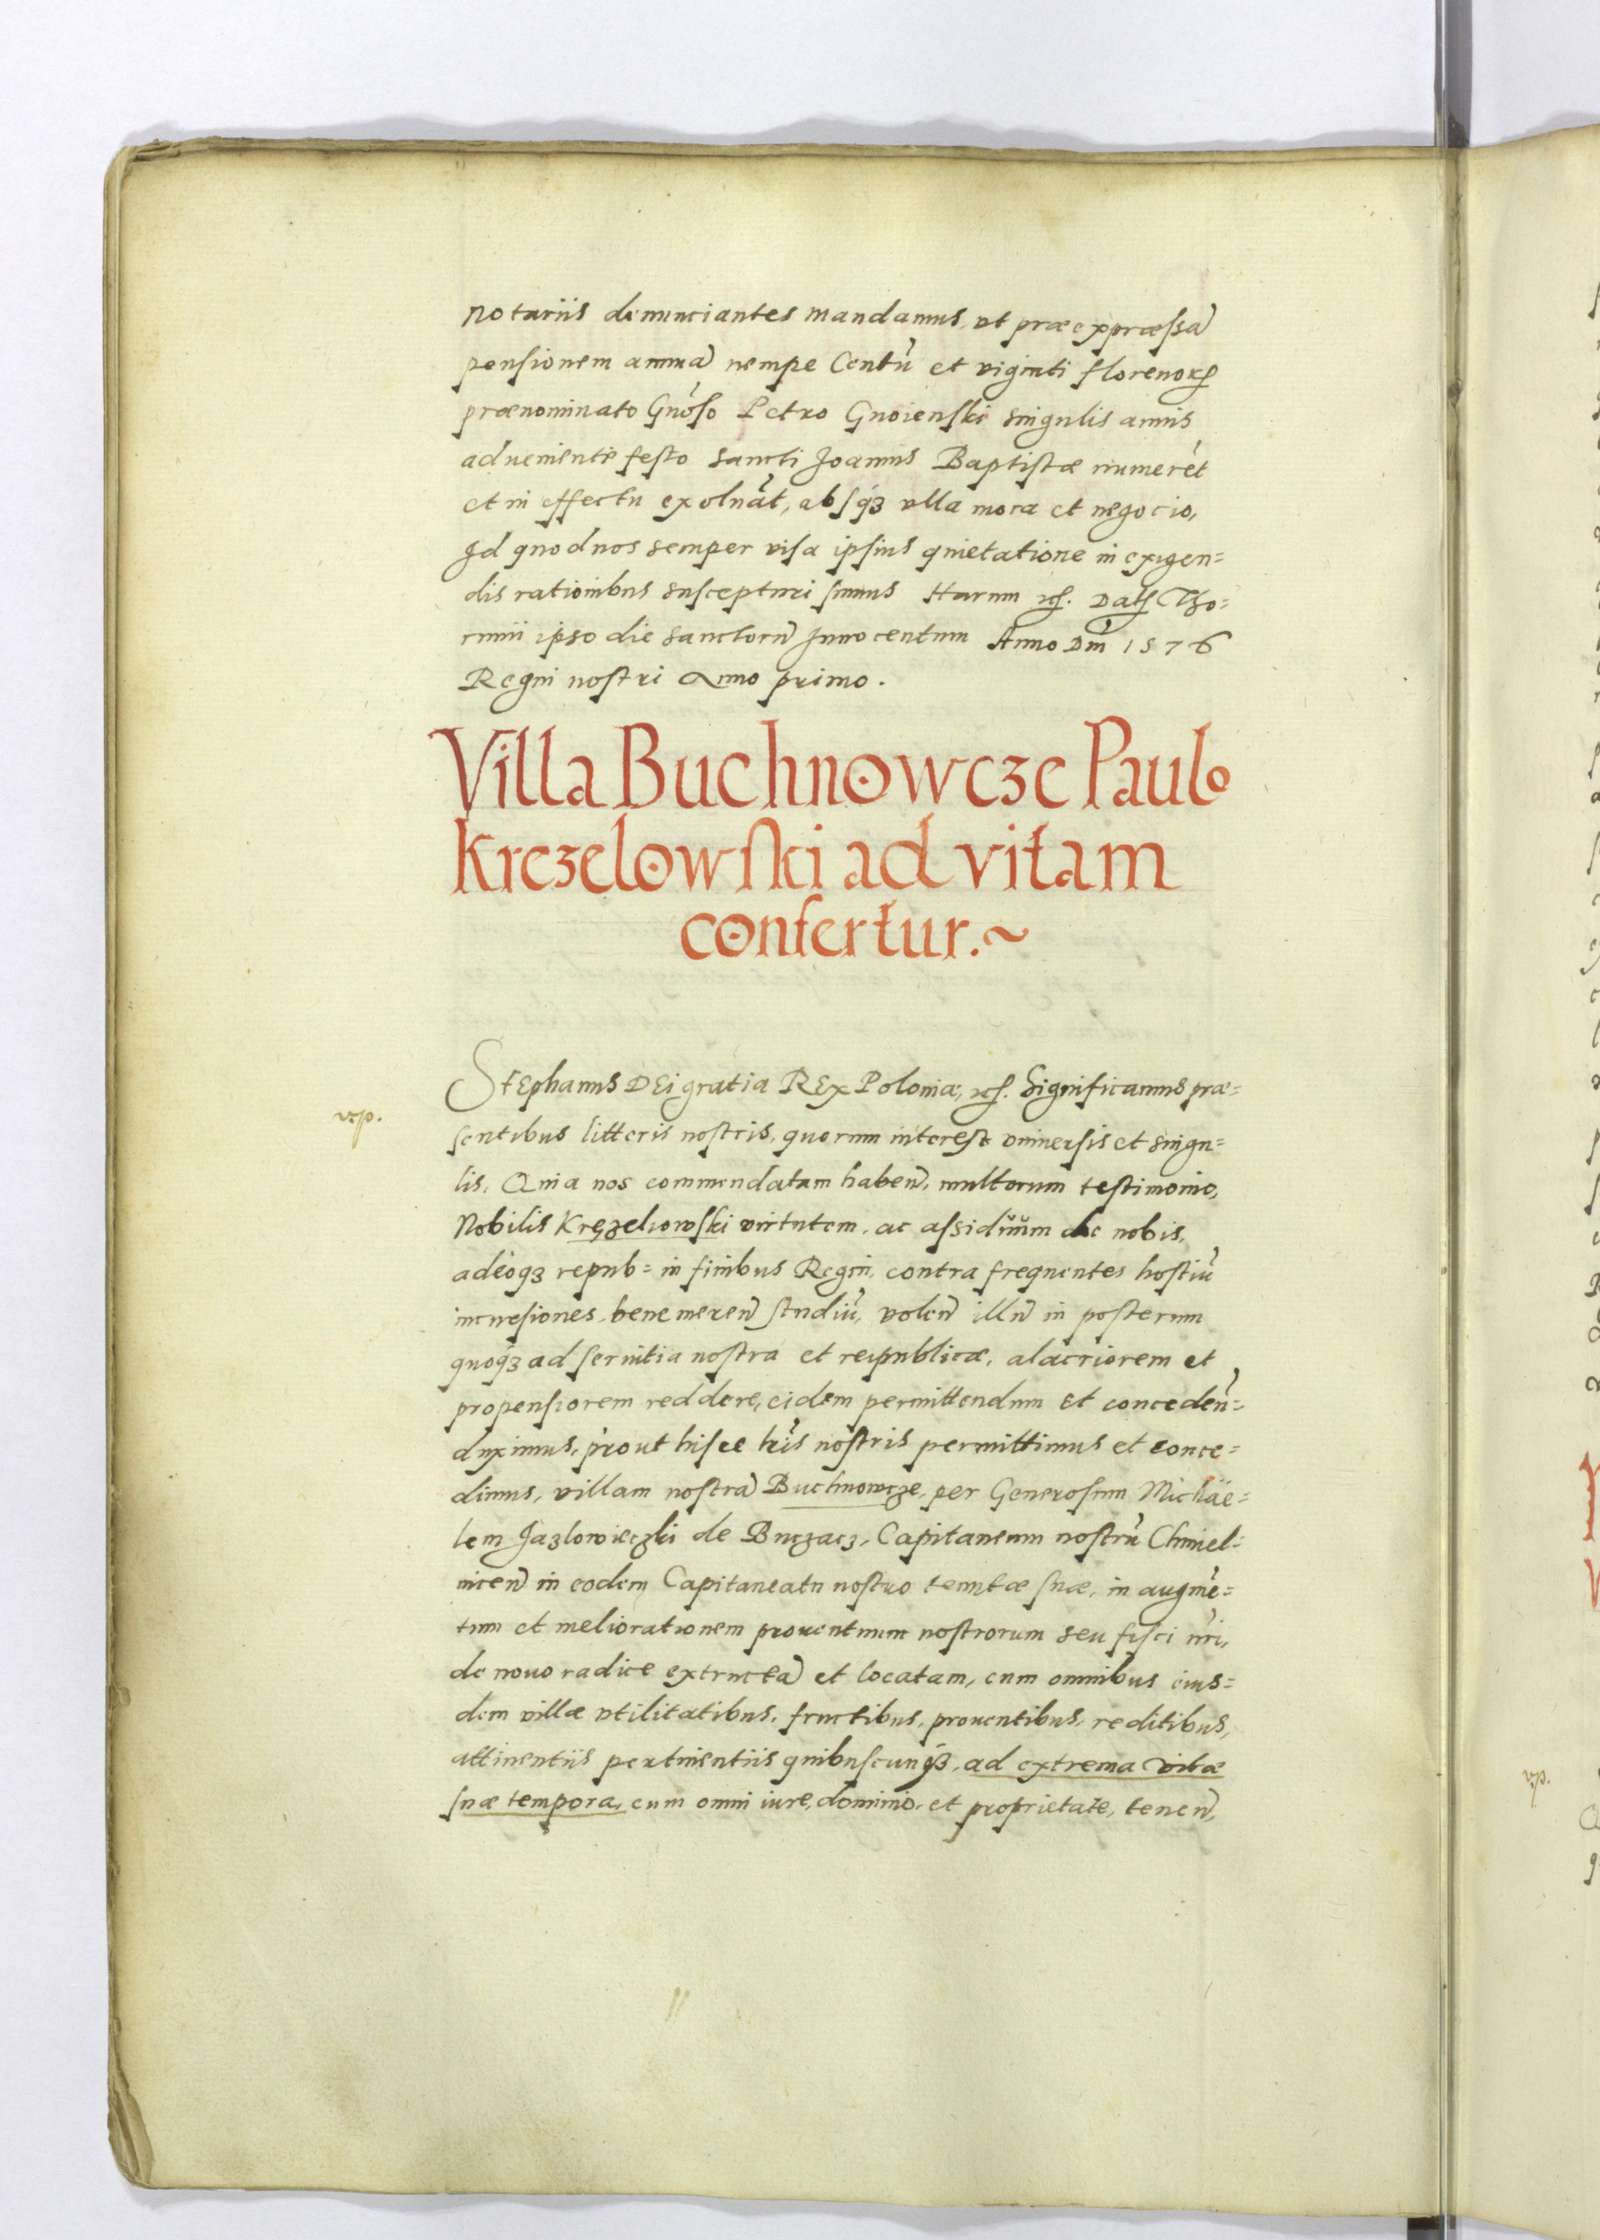 Notariis denunciantes mandamus, vt præexpræssã
pensionem annuã nempe Centũ et viginti florenorꝝ
prænominato Gnõso Petro Gnoienski singulis annis
adueniente festo Sancti Joannis Baptistæ numerẽt
et in effectu exoluãt, absqʒ vlla mora et negocio,
Id quod nos semper visa ipsius quietatione in exigen=
dis rationibus suscepturi sumus Harum etc. Datꝭ Tho=
runii ipso die Sanctorũ Innocentum Anno Dñi 1576
Regni nostri Anno primo.
Villa Buchnowcze Paulo
Krczelowski ad vitam
confertur.~
Stephanus DEi gratia REx Poloniæ, etc. Significamus præ=
sentibus litteris nostris, quorum interest vniuersis et singu=
lis, Quia nos commendatam habeñ, multorum testimonio,
Nobilis Kręzelowski virtutem, ac assiduum de nobis,
adeoqʒ repub= in finibus Regni, contra frequentes hostiũ
incursiones, bene mereñ studiũ, voleñ illũ in posterum
quoqʒ ad seruitia nostra et reipublicæ, alacriorem et
propensiorem reddere, eidem permittendum et concedeñ=
duximus, prout hisce lr̃is nostris permittimus et conce=
dimus, villam nostrã Buchnowcze, per Generosum Michäe=
lem Jazlowieczki de Buczacz, Capitaneum nostrũ Chmiel=
niceñ in eodem Capitaneatu nostro tenutæ suæ, in augmẽ=
tum et meliorationem prouentuum nostrorum seu fisci nr̃i,
de nouo radice extructã et locatam, cum omnibus eius=
dem villæ vtilitatibus, fructibus, prouentibus, reditibus,
attinentiis pertinentiis quibuscunqʒ, ad extrema vitæ
suæ tempora, cum omni iure, dominio, et proprietate, teneñ,